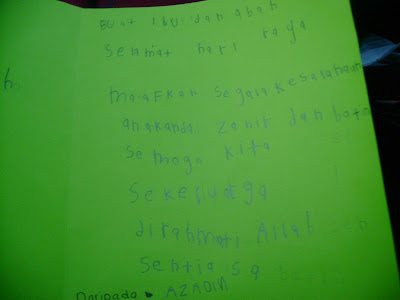 Buat Ibu dan abah
Selamat hari raya
maafkan segala kesalahan
anakanda zahir dan batin
semoga kita
sekeluarga
dirahmati Allah
sentiasa
Daripada AZADIN